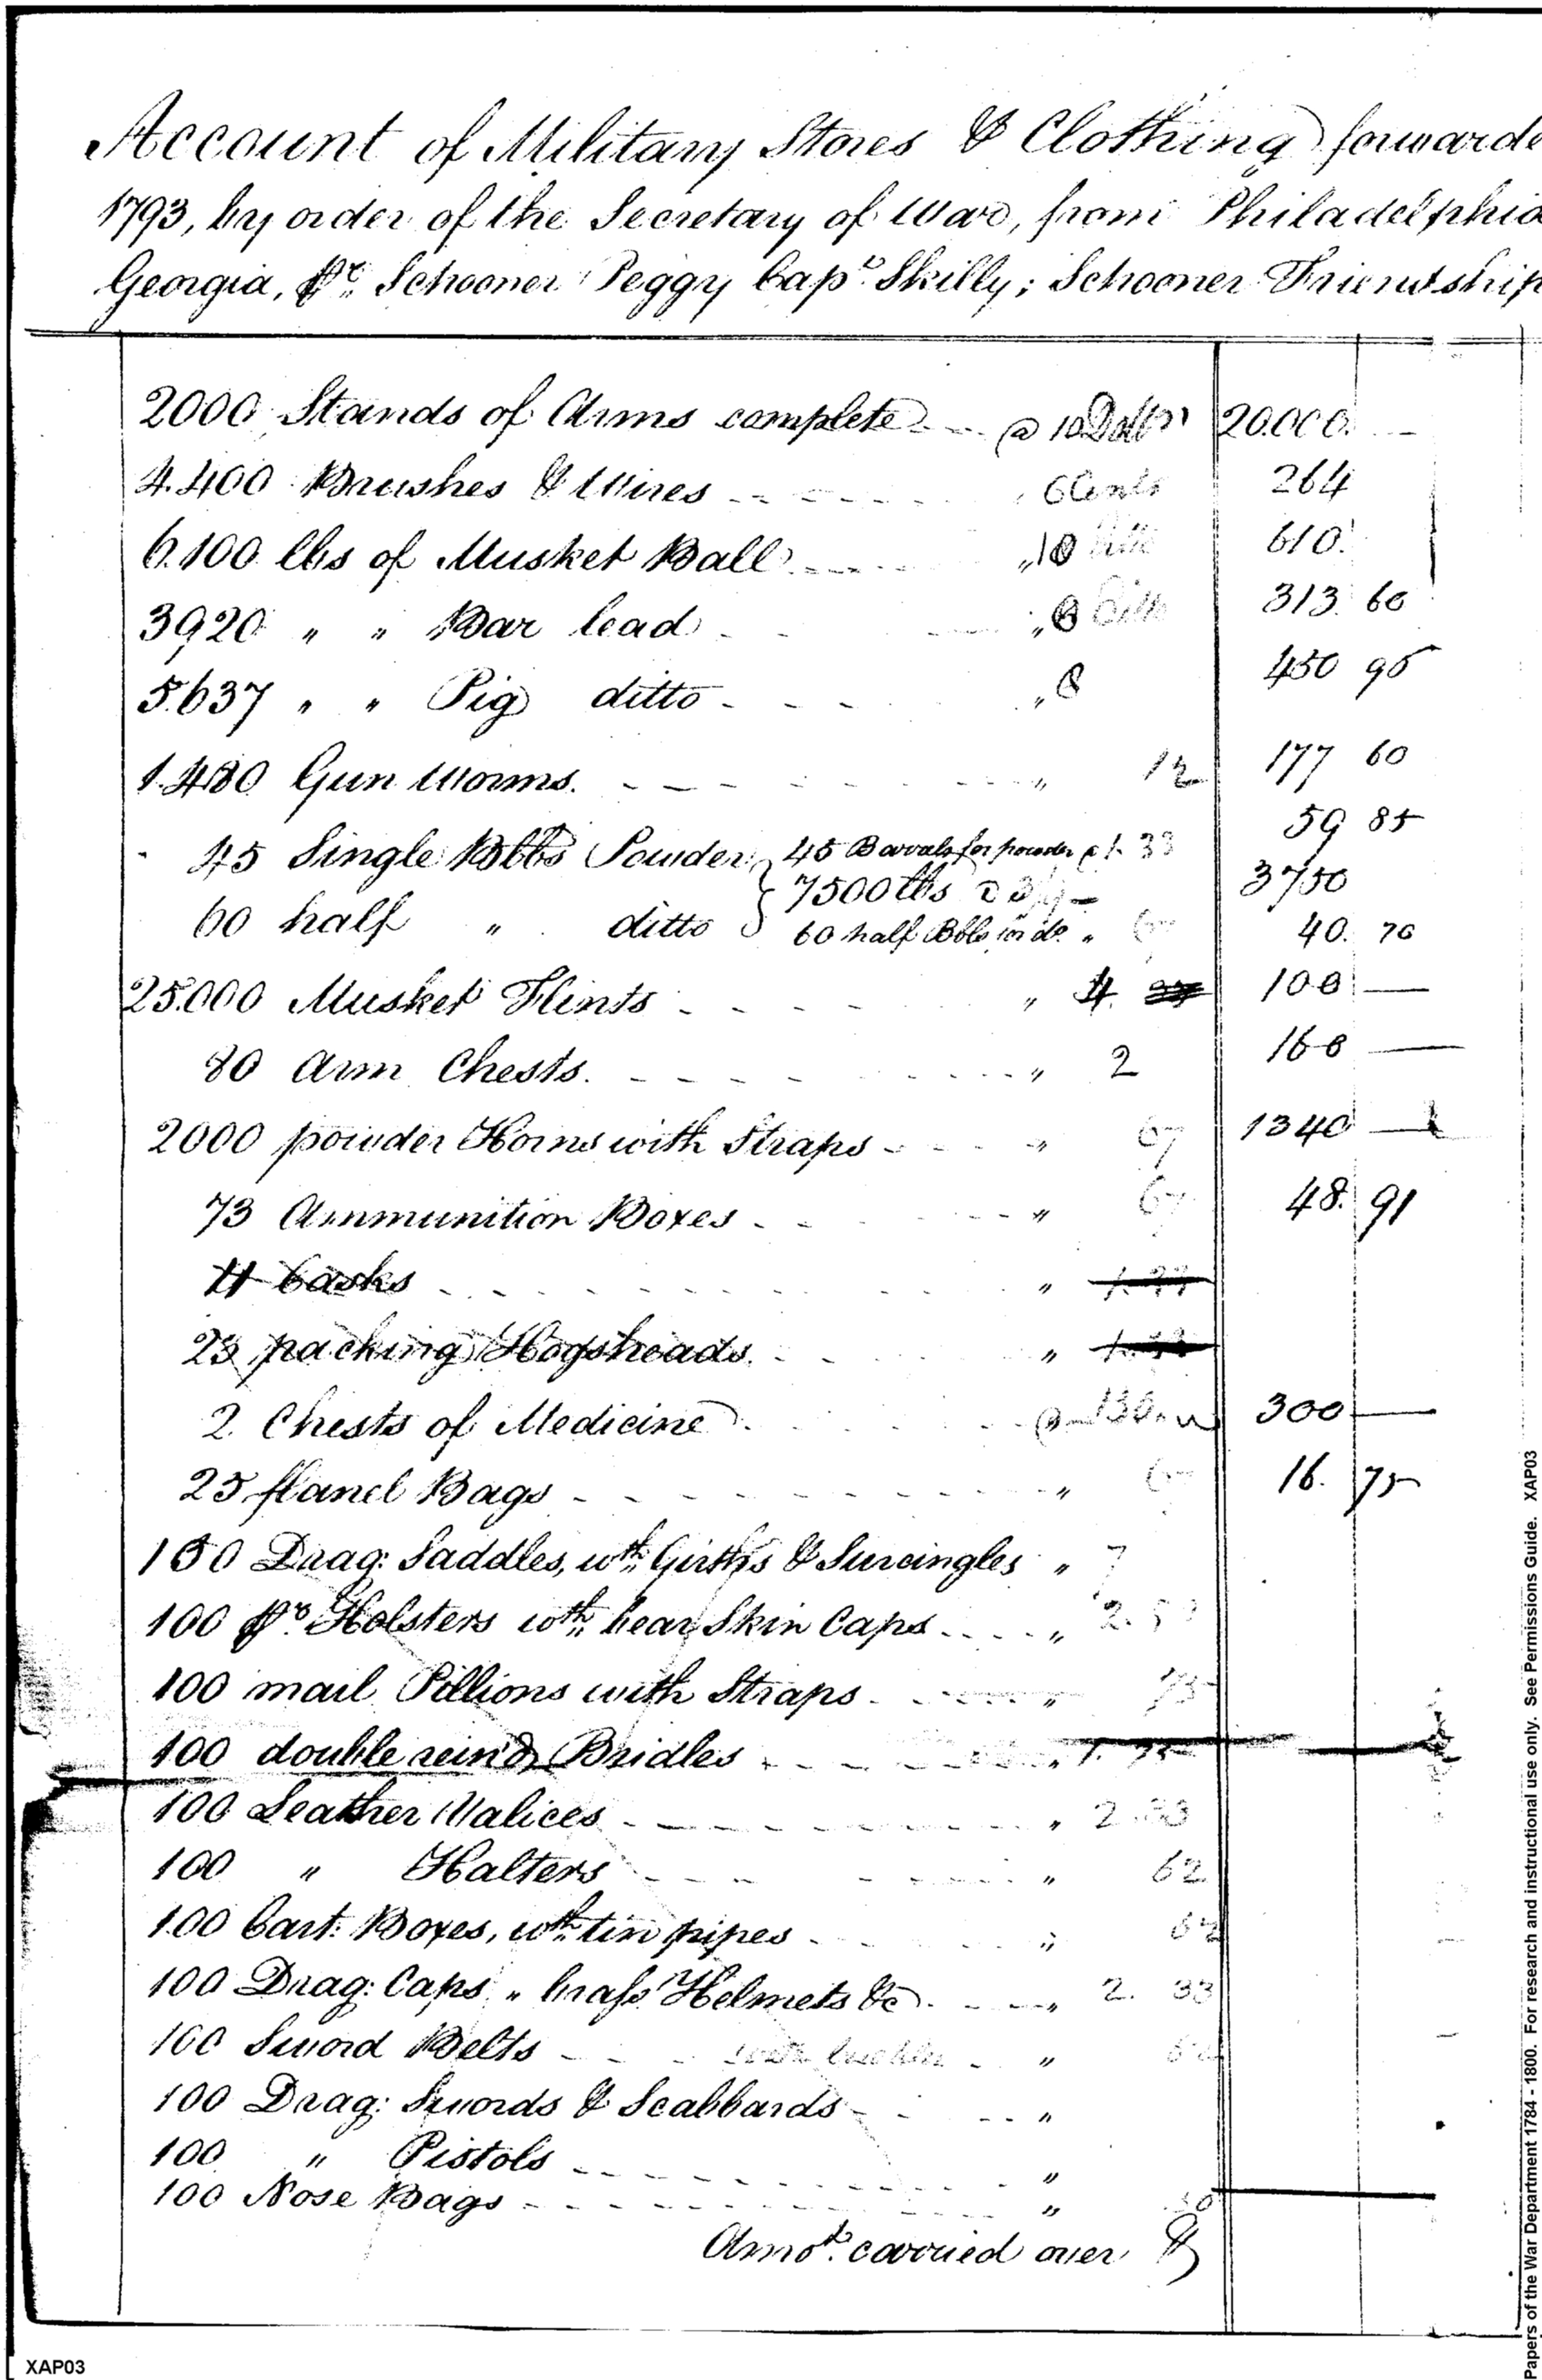 Account of Military Stores & Clothing forwarde
1793, by order of the Secretary of War, from Philadelphia
Georgia, pr. Schooner Peggy Capt. Skilly; Schooner Friendship
2000 Stands of Arms complete @ 10 Dollrs 20.000. —
4.400 Brushes & Wires " 6 Cents 264
6.100 lbs of Musket Ball " 10 610.
3920 " " Bar lead " 8 313. 60
5.637 " " Pig ditto " 8 450 96
1.480 Gun Worms. " 12 177 60
45 Single Bbls Powder 45 Barrals for powder @ 1. 33 59 85
7500 lbs @ 3750
60 half " ditto 60 half Bbls for do. " 40. 70
25.000 Musket Flints " 4. 100 —
80 Arm Chests. " 2 160 —
2000 powder Horns with Straps " 67 1340 —
73 Ammunition Boxes " 67 48. 91
11 Casks " 1.33
23 packing Hogsheads. " 1.33
2 Chests of Medicine @ 150 300 —
25 flanel Bags " 67 16. 75
100 Drag: Saddles, wth. Girths & Surcingles " 7
100 pr. Holsters wth. bear Skin Caps " 2.
100 mail Pillions with Straps " 75
100 double reind Bridles " 1. 75
100 Leather Valices " 2. 33
100 " Halters " 62
100 Cart: Boxes, wth. tin pipes "
100 Drag: Caps " brass Helmets &c. " 2. 33
100 Sword Belts "
100 Drag: Swords & Scabbards "
100 " Pistols "
100 Nose Bags "
Amot. carried over $
XAP03
Papers of the War Department 1784 - 1800. For research and instructional use only. See Permissions Guide. XAP03